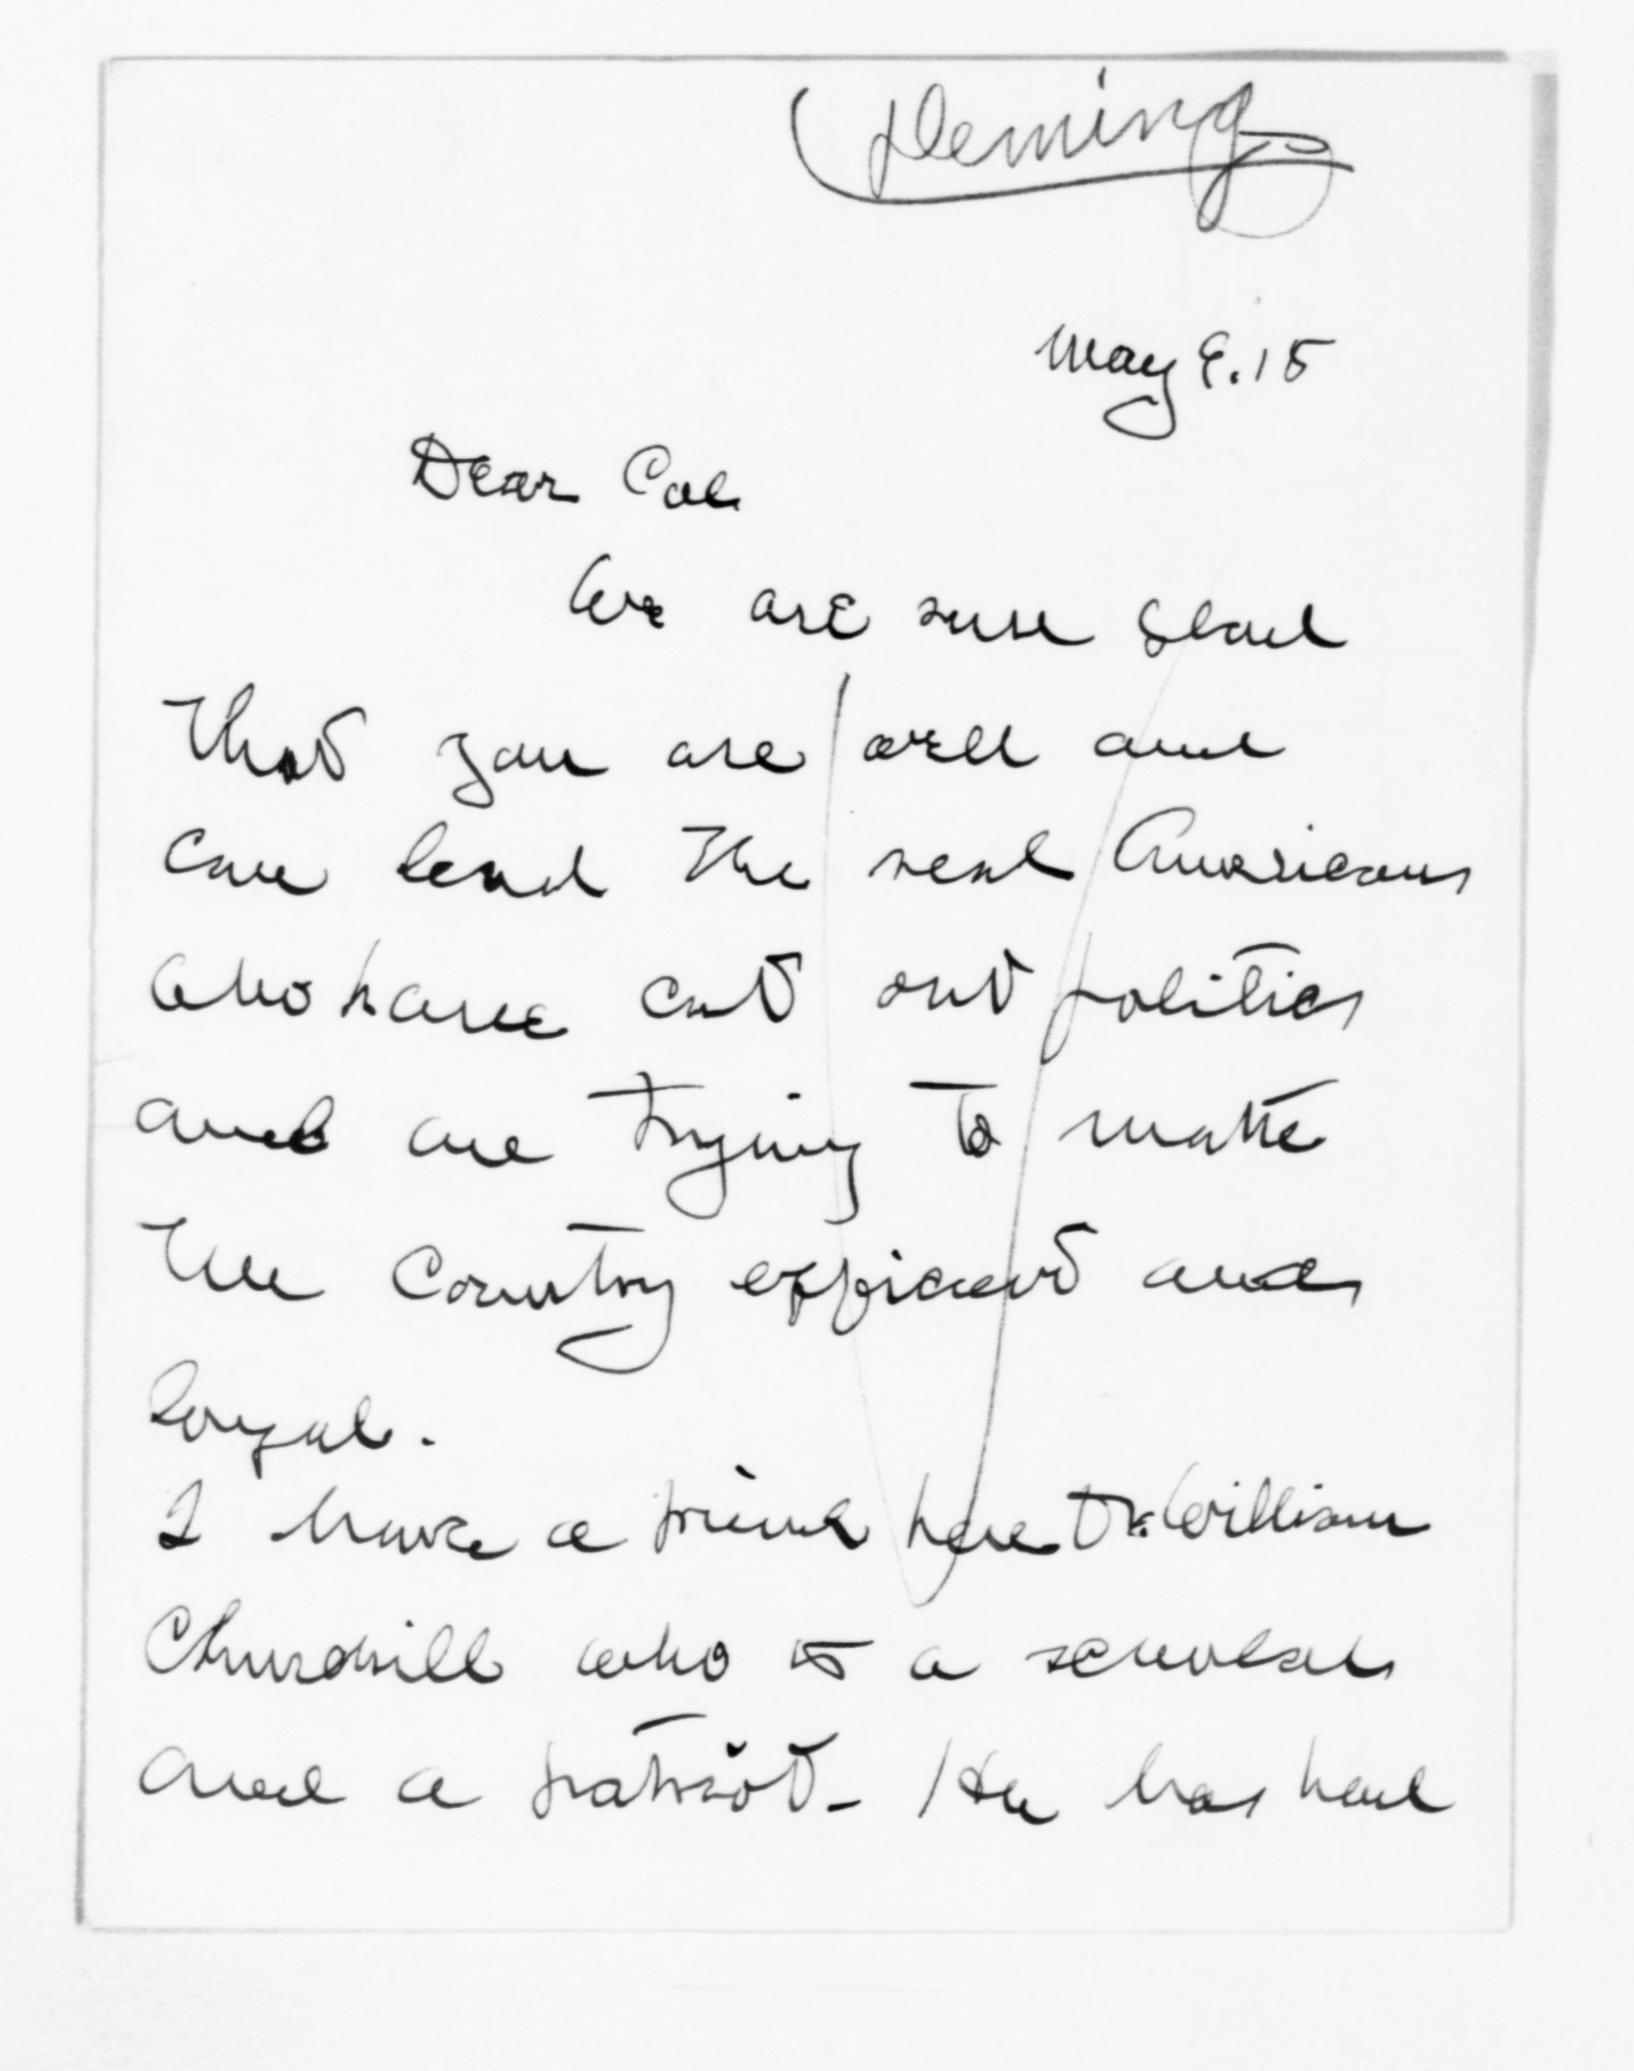 Deming
May 9. 18
Dear Col.
We are sure glad
that you are well and
can lead the real Americans
who have cut out politics
and are trying to make
the Country efficient and
loyal.
I have a friend here Dr. William
Churchill who is a scholar
and a patriot - He has had